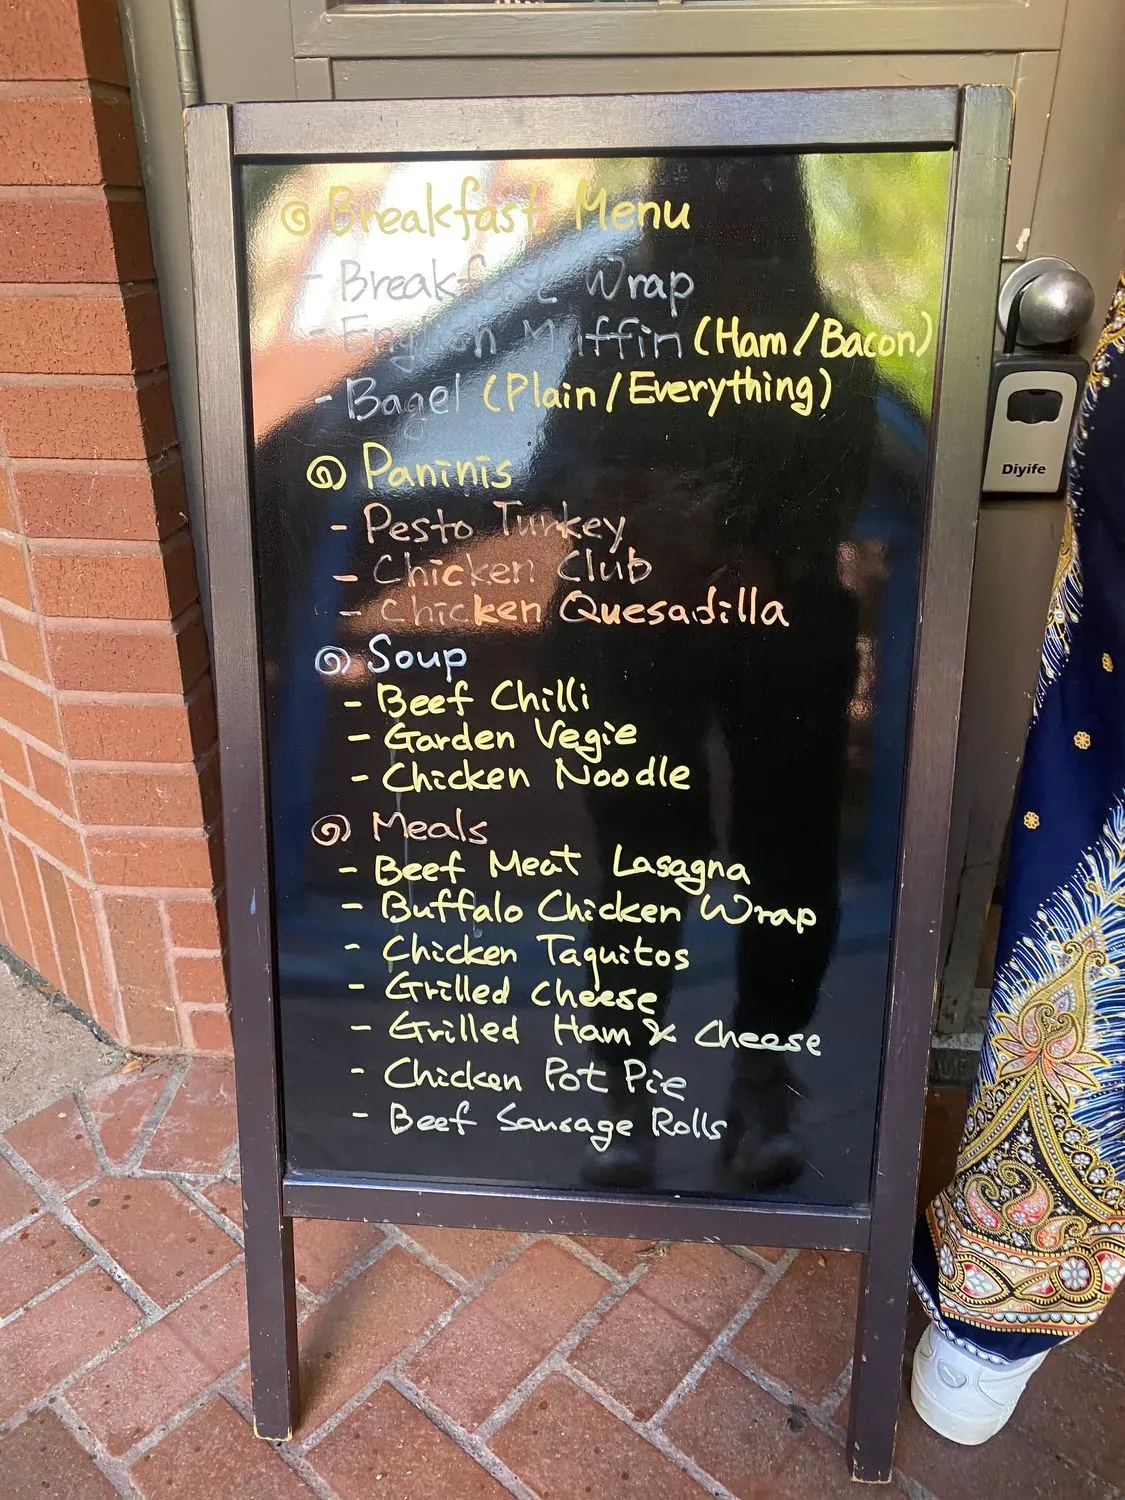 Breakfast Menu
- Breakfast Wrap
- English Muffin (Ham/Bacon)
- Bagel (Plain/Everything)
Paninis
- Pesto Turkey
- Chicken Club
- Chicken Quesadilla
Soup
- Beef Chilli
- Garden Vegie
- Chicken Noodle
Meals
- Beef Meat Lasagna
- Buffalo Chicken Wrap
- Chicken Taquitos
- Grilled Cheese
- Grilled Ham & Cheese
- Chicken Pot Pie
- Beef Sausage Rolls
Diyife